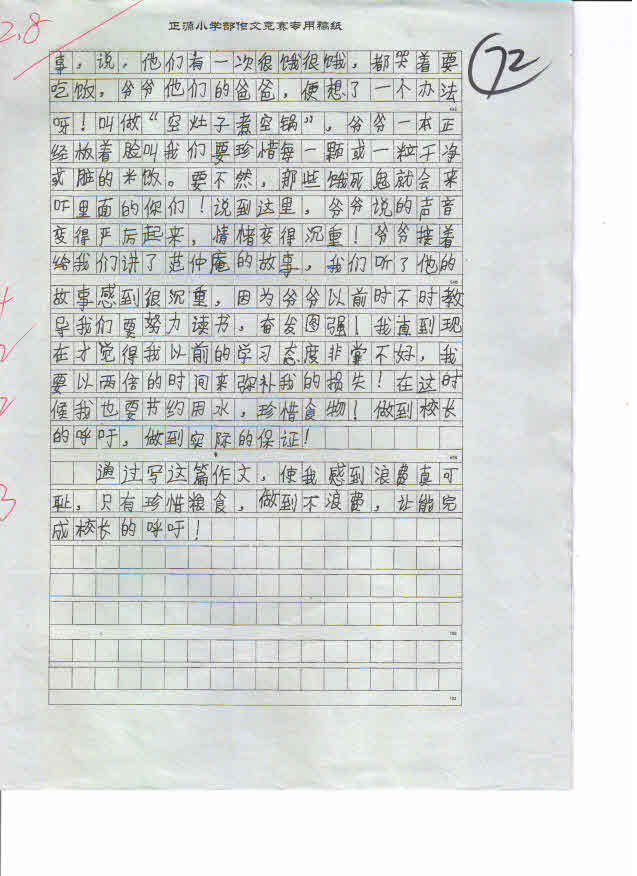 正源小学部作文竞赛专用稿纸
2.8
72
事，说，他们有一次很饿很饿，都哭着要
吃饭，爷爷他们的爸爸，便想了一个办法
呀！叫做“空灶子煮空锅”，爷爷一本正
经板着脸叫我们要珍惜每一颗或一粒干净
或脏的米饭。要不然，那些饿死鬼就会来
吓里面的你们！说到这里，爷爷说的声音
变得严厉起来，情绪变得沉重！爷爷接着
给我们讲了范仲庵的故事，我们听了他的
故事感到很沉重，因为爷爷以前时不时教
导我们要努力读书，奋发图强！我直到现
在才觉得我以前的学习态度非常不好，我
要以两倍的时间来弥补我的损失！在这时
候我也要节约用水，珍惜食物！做到校长
的呼吁，做到实际的保证！
通过写这篇作文，使我感到浪费真可
耻，只有珍惜粮食，做到不浪费，让能完
成校长的呼吁！